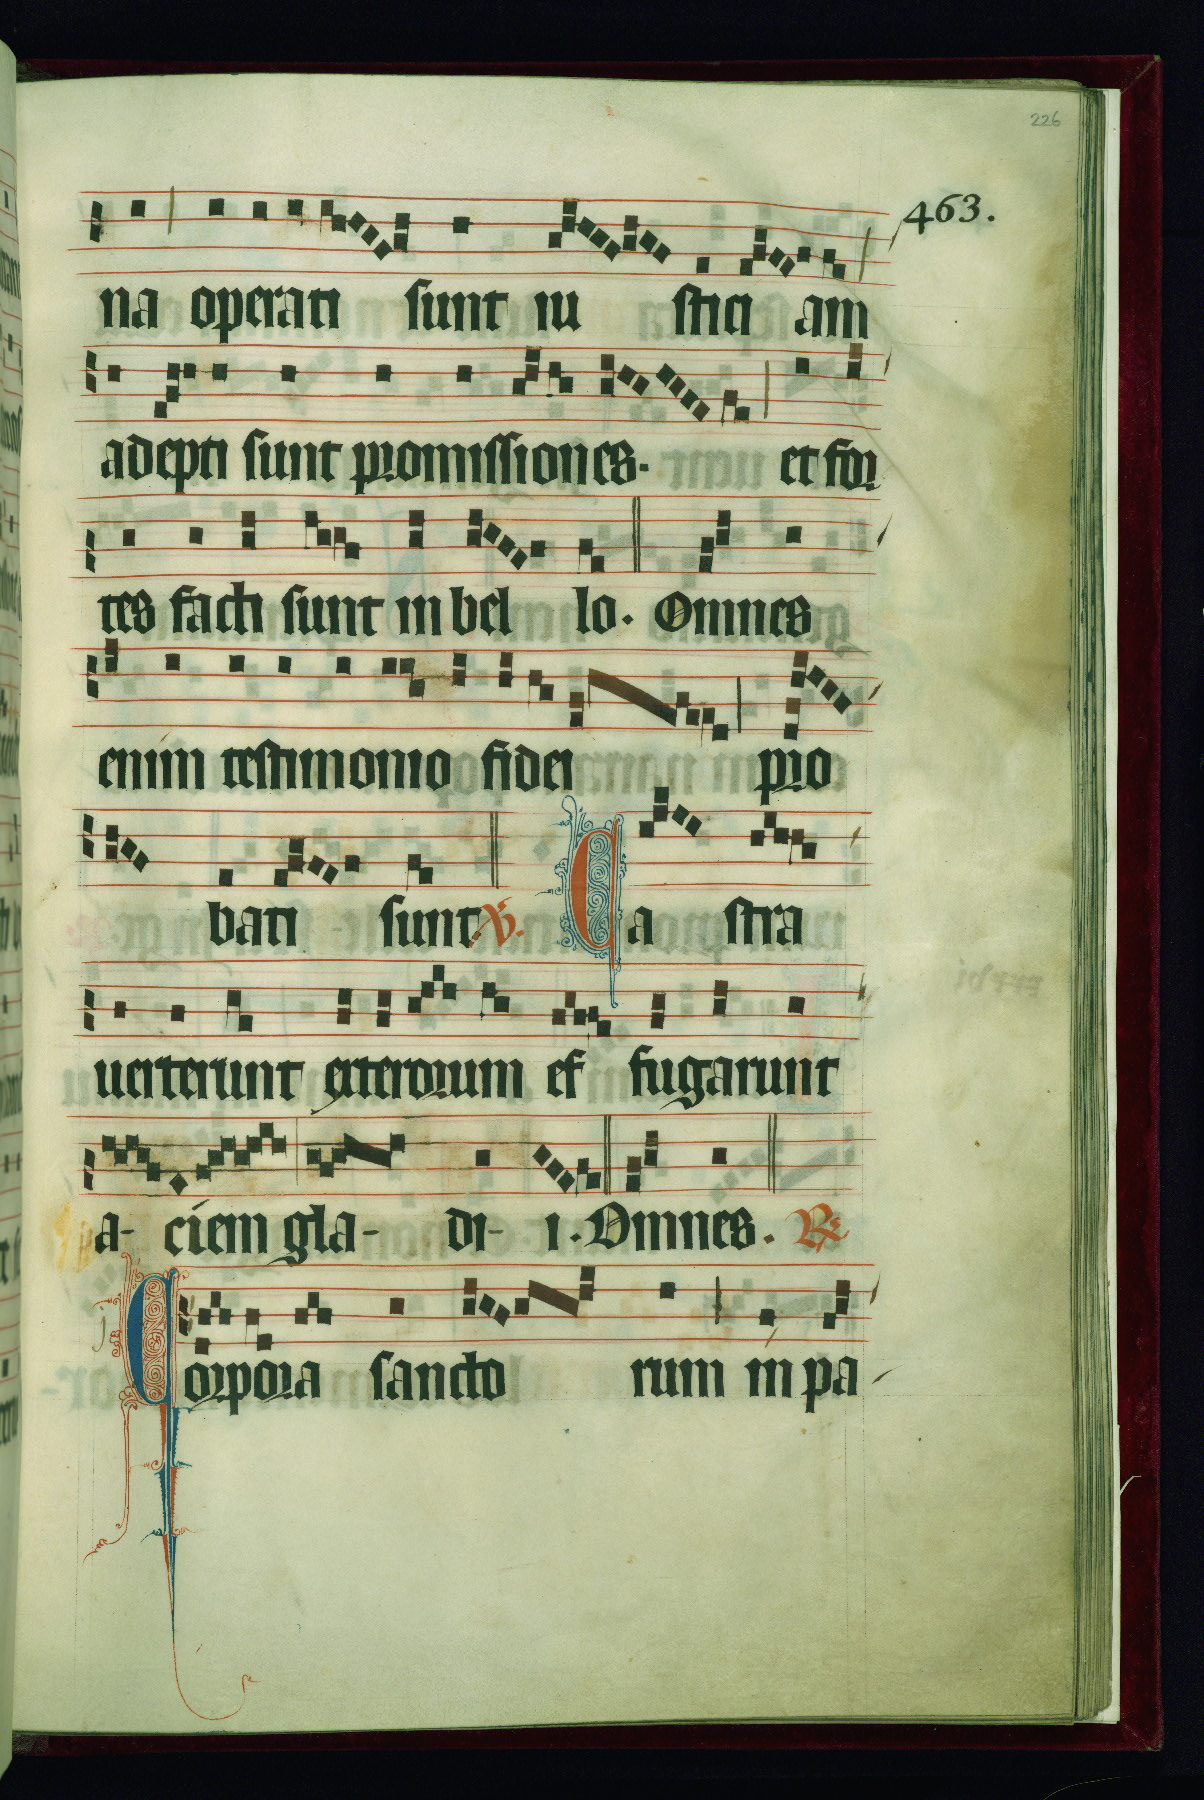 226
463.
na operati sunt iu stici am
adepti sunt promissiones. et for
tes facti sunt in bel lo. Omnes
enim testimonio fidei pro
bati sunt. V. Ca stra
uerterunt exterorum ef fugarunt
a- ciem gla- di- i. Omnes. R
Corpora sancto rum in pa